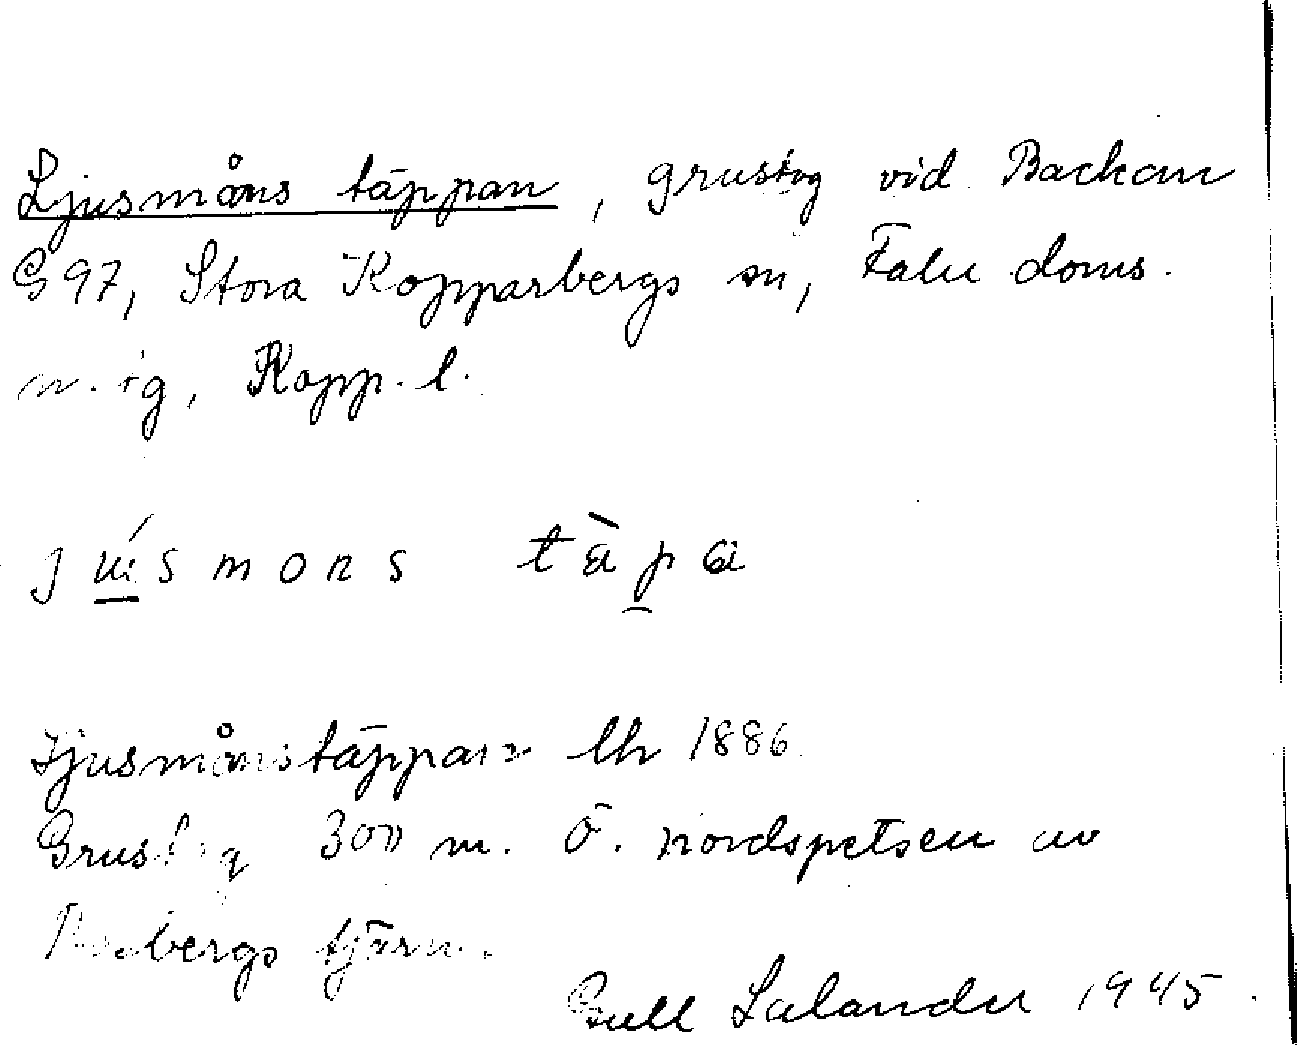 Ljusmåns täppan, grustag vid Backan
G 97, Stora Kopparbergs sn, Falu doms.
n.ig, Kopp. l.
júsmons tàpa
Ljusmånstäppan lh 1886.
Grustag 300 m. Ö. nordspetsen av
tjärn.
Gull Salander 1945.